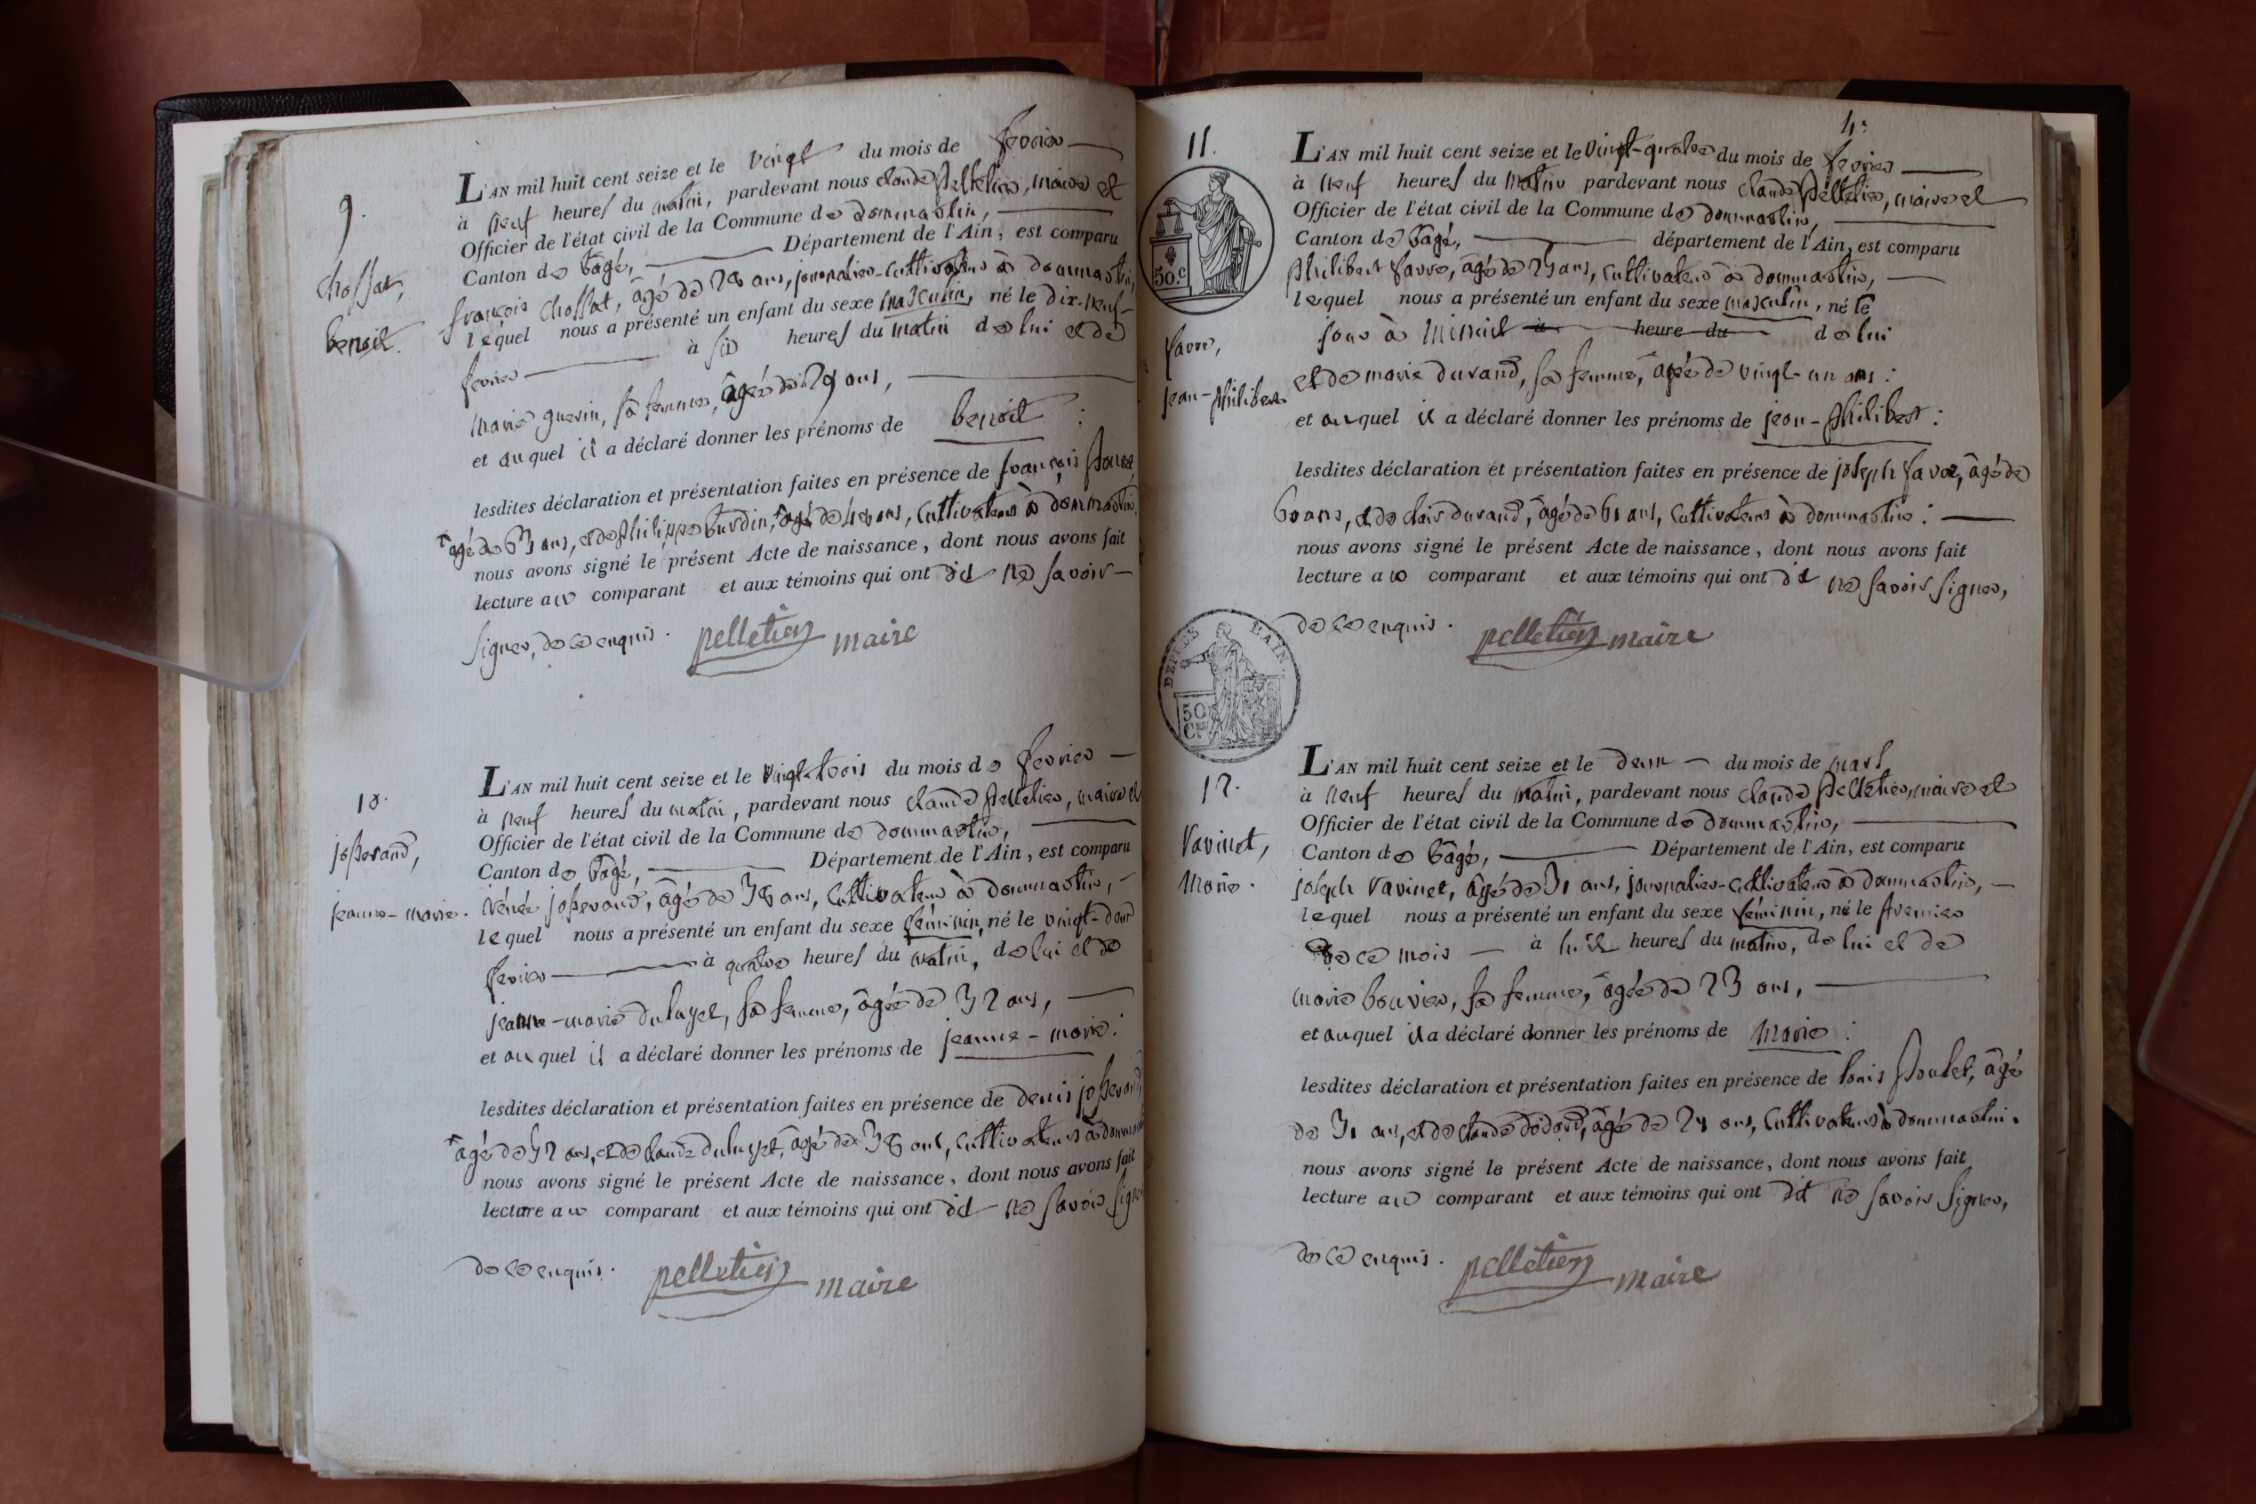 9.
Chossat,
benoit.
L'AN mil huit cent seize et le vingt du mois de fevrier
à neuf heures du matin, pardevant nous claude pelletier, maire et
Officier de l'état civil de la Commune de dommartin,
Canton de bâgé, Département de l'Ain, est comparu
françois Chossat, âgé de 28 ans, journalier-cultivateur à dommartin,
lequel nous a présenté un enfant du sexe masculin, né le dix-neuf
fevrier à six heures du matin de lui et de
marie guerin, sa femme, âgée de 29 ans,
et auquel il a déclaré donner les prénoms de benoit :
lesdites déclaration et présentation faites en présence de françois
âgé de 63 ans, et de philippe burdin, âgé de ans, cultivateurs à dommartin.
nous avons signé le présent Acte de naissance, dont nous avons fait
lecture au comparant et aux témoins qui ont dit ne savoir
signer, de ce enquis.
pelletier maire
10.
josserand,
jeanne-marie.
L'AN mil huit cent seize et le vingt-trois du mois de fevrier
à neuf heures du matin, pardevant nous claude pelletier, maire et
Officier de l'état civil de la Commune de dommartin,
Canton de bâgé, Département de l'Ain, est comparu
René josserand, âgé de 38 ans, cultivateur à dommartin,
lequel nous a présenté un enfant du sexe féminin, né le vingt-deux
fevrier à quatre heures du matin, de lui et de
jeanne-marie dulayet, sa femme, âgée de 32 ans,
et auquel il a déclaré donner les prénoms de jeanne-marie :
lesdites déclaration et présentation faites en présence de denis josserand,
âgé de 52 ans, et de claude dulayet, âgé de 38 ans, cultivateurs à dommartin
nous avons signé le présent Acte de naissance, dont nous avons fait
lecture au comparant et aux témoins qui ont dit ne savoir signer
de ce enquis.
pelletier maire
4.
11.
50.c
favre,
jean-philibert.
L'AN mil huit cent seize et le vingt-quatre du mois de fevrier
à neuf heures du matin pardevant nous claude pelletier, maire et
Officier de l'état civil de la Commune de dommartin,
Canton de bâgé, département de l'Ain, est comparu
philibert favre, âgé de 25 ans, cultivateur à dommartin,
lequel nous a présenté un enfant du sexe masculin, né le
jour à minuit à heure du de lui
et de marie durand, sa femme, âgée de vingt-un ans :
et auquel il a déclaré donner les prénoms de jean-philibert :
lesdites déclaration et présentation faites en présence de joseph favre, âgé de
60 ans, et de clair durand, âgé de 61 ans, cultivateurs à dommartin :
nous avons signé le présent Acte de naissance, dont nous avons fait
lecture au comparant et aux témoins qui ont dit ne savoir signer,
de ce enquis.
pelletier maire
50
L'AIN.
12.
Vavinet,
Marie.
L'AN mil huit cent seize et le deux du mois de mars
à neuf heures du matin, pardevant nous claude pelletier, maire et
Officier de l'état civil de la Commune de dommartin,
Canton de bâgé, Département de l'Ain, est comparu
joseph Vavinet, âgé de 31 ans, journalier-cultivateur à dommartin,
lequel nous a présenté un enfant du sexe féminin, né le premier
de ce mois à huit heures du matin, de lui et de
marie bouvier, sa femme, âgée de 23 ans,
et auquel il a déclaré donner les prénoms de Marie :
lesdites déclaration et présentation faites en présence de louis poulet, âgé
de 31 ans, et de claude âgé de ans, cultivateurs à dommartin.
nous avons signé le présent Acte de naissance, dont nous avons fait
lecture au comparant et aux témoins qui ont dit ne savoir signer,
de ce enquis.
pelletier maire